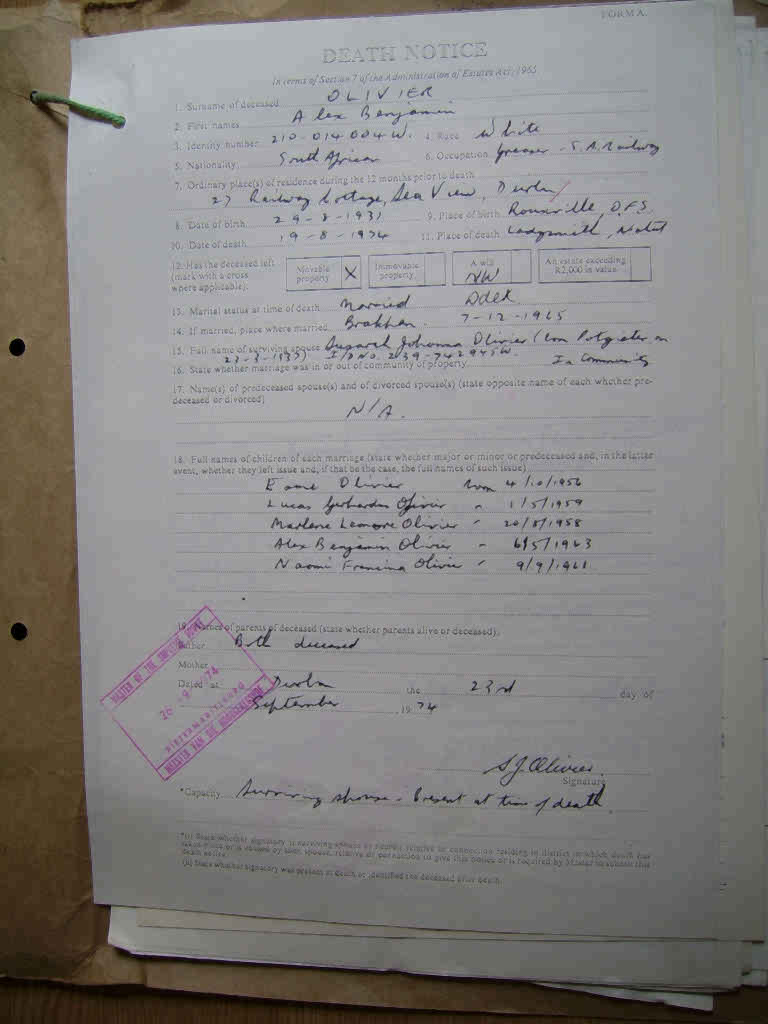 FORM A.
DEATH NOTICE
In terms of Section 7 of the Administration of Estates Act, 1965
1. Surname of deceased OLIVIER
2. First names Alex Benjamin
3. Identity number 210-014004W. 4. Race White
5. Nationality South African 6. Occupation Greaser - S.A. Railway
7. Ordinary place(s) of residence during the 12 months prior to death
27 Railway Cottage, Sea View, Durban
8. Date of birth 29-8-1931 9. Place of birth Rouxville, O.F.S.
10. Date of death 19-8-1974 11. Place of death Ladysmith, Natal
12. Has the deceased left (mark with a cross where applicable): Movable property X Immovable property A will An estate exceeding R2,000 in value
13. Marital status at time of death Married
14. If married, place where married Brakpan. 7-12-1965
15. Full name of surviving spouse Susarah Johanna Olivier (born Potgieter on
23-3-1937) I/D No. 239-742945W.
16. State whether marriage was in or out of community of property In Community
17. Name(s) of predeceased spouse(s) and of divorced spouse(s) (state opposite name of each whether pre-
deceased or divorced)
N/A.
18. Full names of children of each marriage (state whether major or minor or predeceased and, in the latter
event, whether they left issue and, if that be the case, the full names of such issue)
Olivier born 4/10/1956
Lucas Gerhardus Olivier " 1/5/1959
Marlene Leonore Olivier " 20/8/1958
Alex Benjamin Olivier " 6/5/1963
Naomi Francina Olivier " 9/9/1961
19. Names of parents of deceased (state whether parents alive or deceased),
Father Both deceased
Mother
Dated at Durban the 23rd day of
September 1974
MASTER OF THE SUPREME COURT
26 -9- 1974
PIETERMARITZBURG
MEESTER VAN DIE HOOGGEREGSHOF
S J Olivier
Signature
*Capacity Surviving spouse - Present at time of death
*(i) State whether signatory is surviving spouse or nearest relative or connection residing in district in which death has
taken place or is caused by such spouse, relative or connection to give this notice or is required by Master to submit this
death notice.
(ii) State whether signatory was present at death or identified the deceased after death.